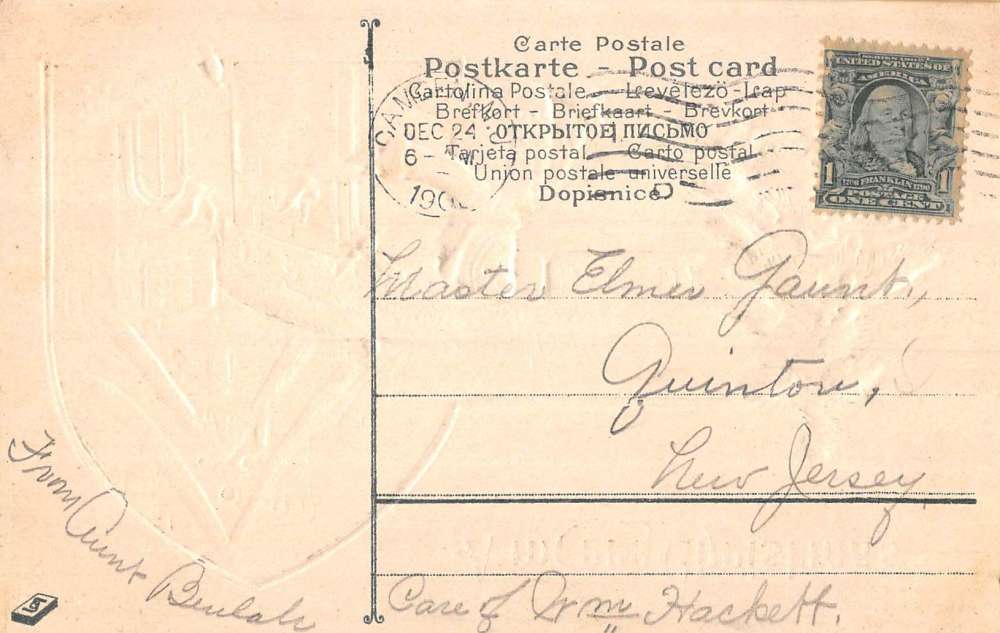 Carte Postale
Postkarte - Post card
Cartolina Postale - Levelezö-Lap
Brefkort - Briefkaart - Brevkort
ОТКРЫТОЕ ПИСЬМО
Tarjeta postal - Carto postal
Union postale universelle
Dopisnice
DEC 24
6 -
UNITED STATES OF
AMERICA
1 1706 FRANKLIN 1790 1
ONE CENT
Master Elmer Gaunt,
Quinton,
New Jersey
Care of Wm Hackett.
From Aunt Beulah